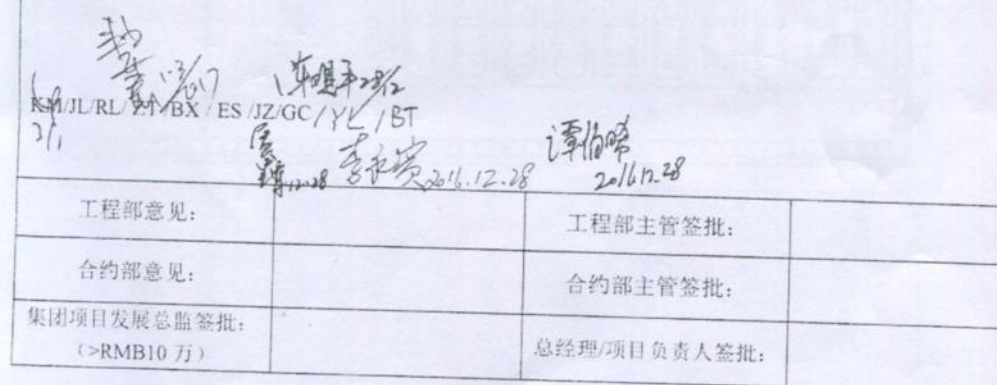 1.3/2017
车明平28/12
KM/JL/RL/ZT/BX / ES /JZ/GC / YL / BT
谭伯晞
12.28 李永赏 2016.12.28 2016.12.28
工程部意见： 工程部主管签批：
合约部意见： 合约部主管签批：
集团项目发展总监签批：
（>RMB10 万） 总经理/项目负责人签批：